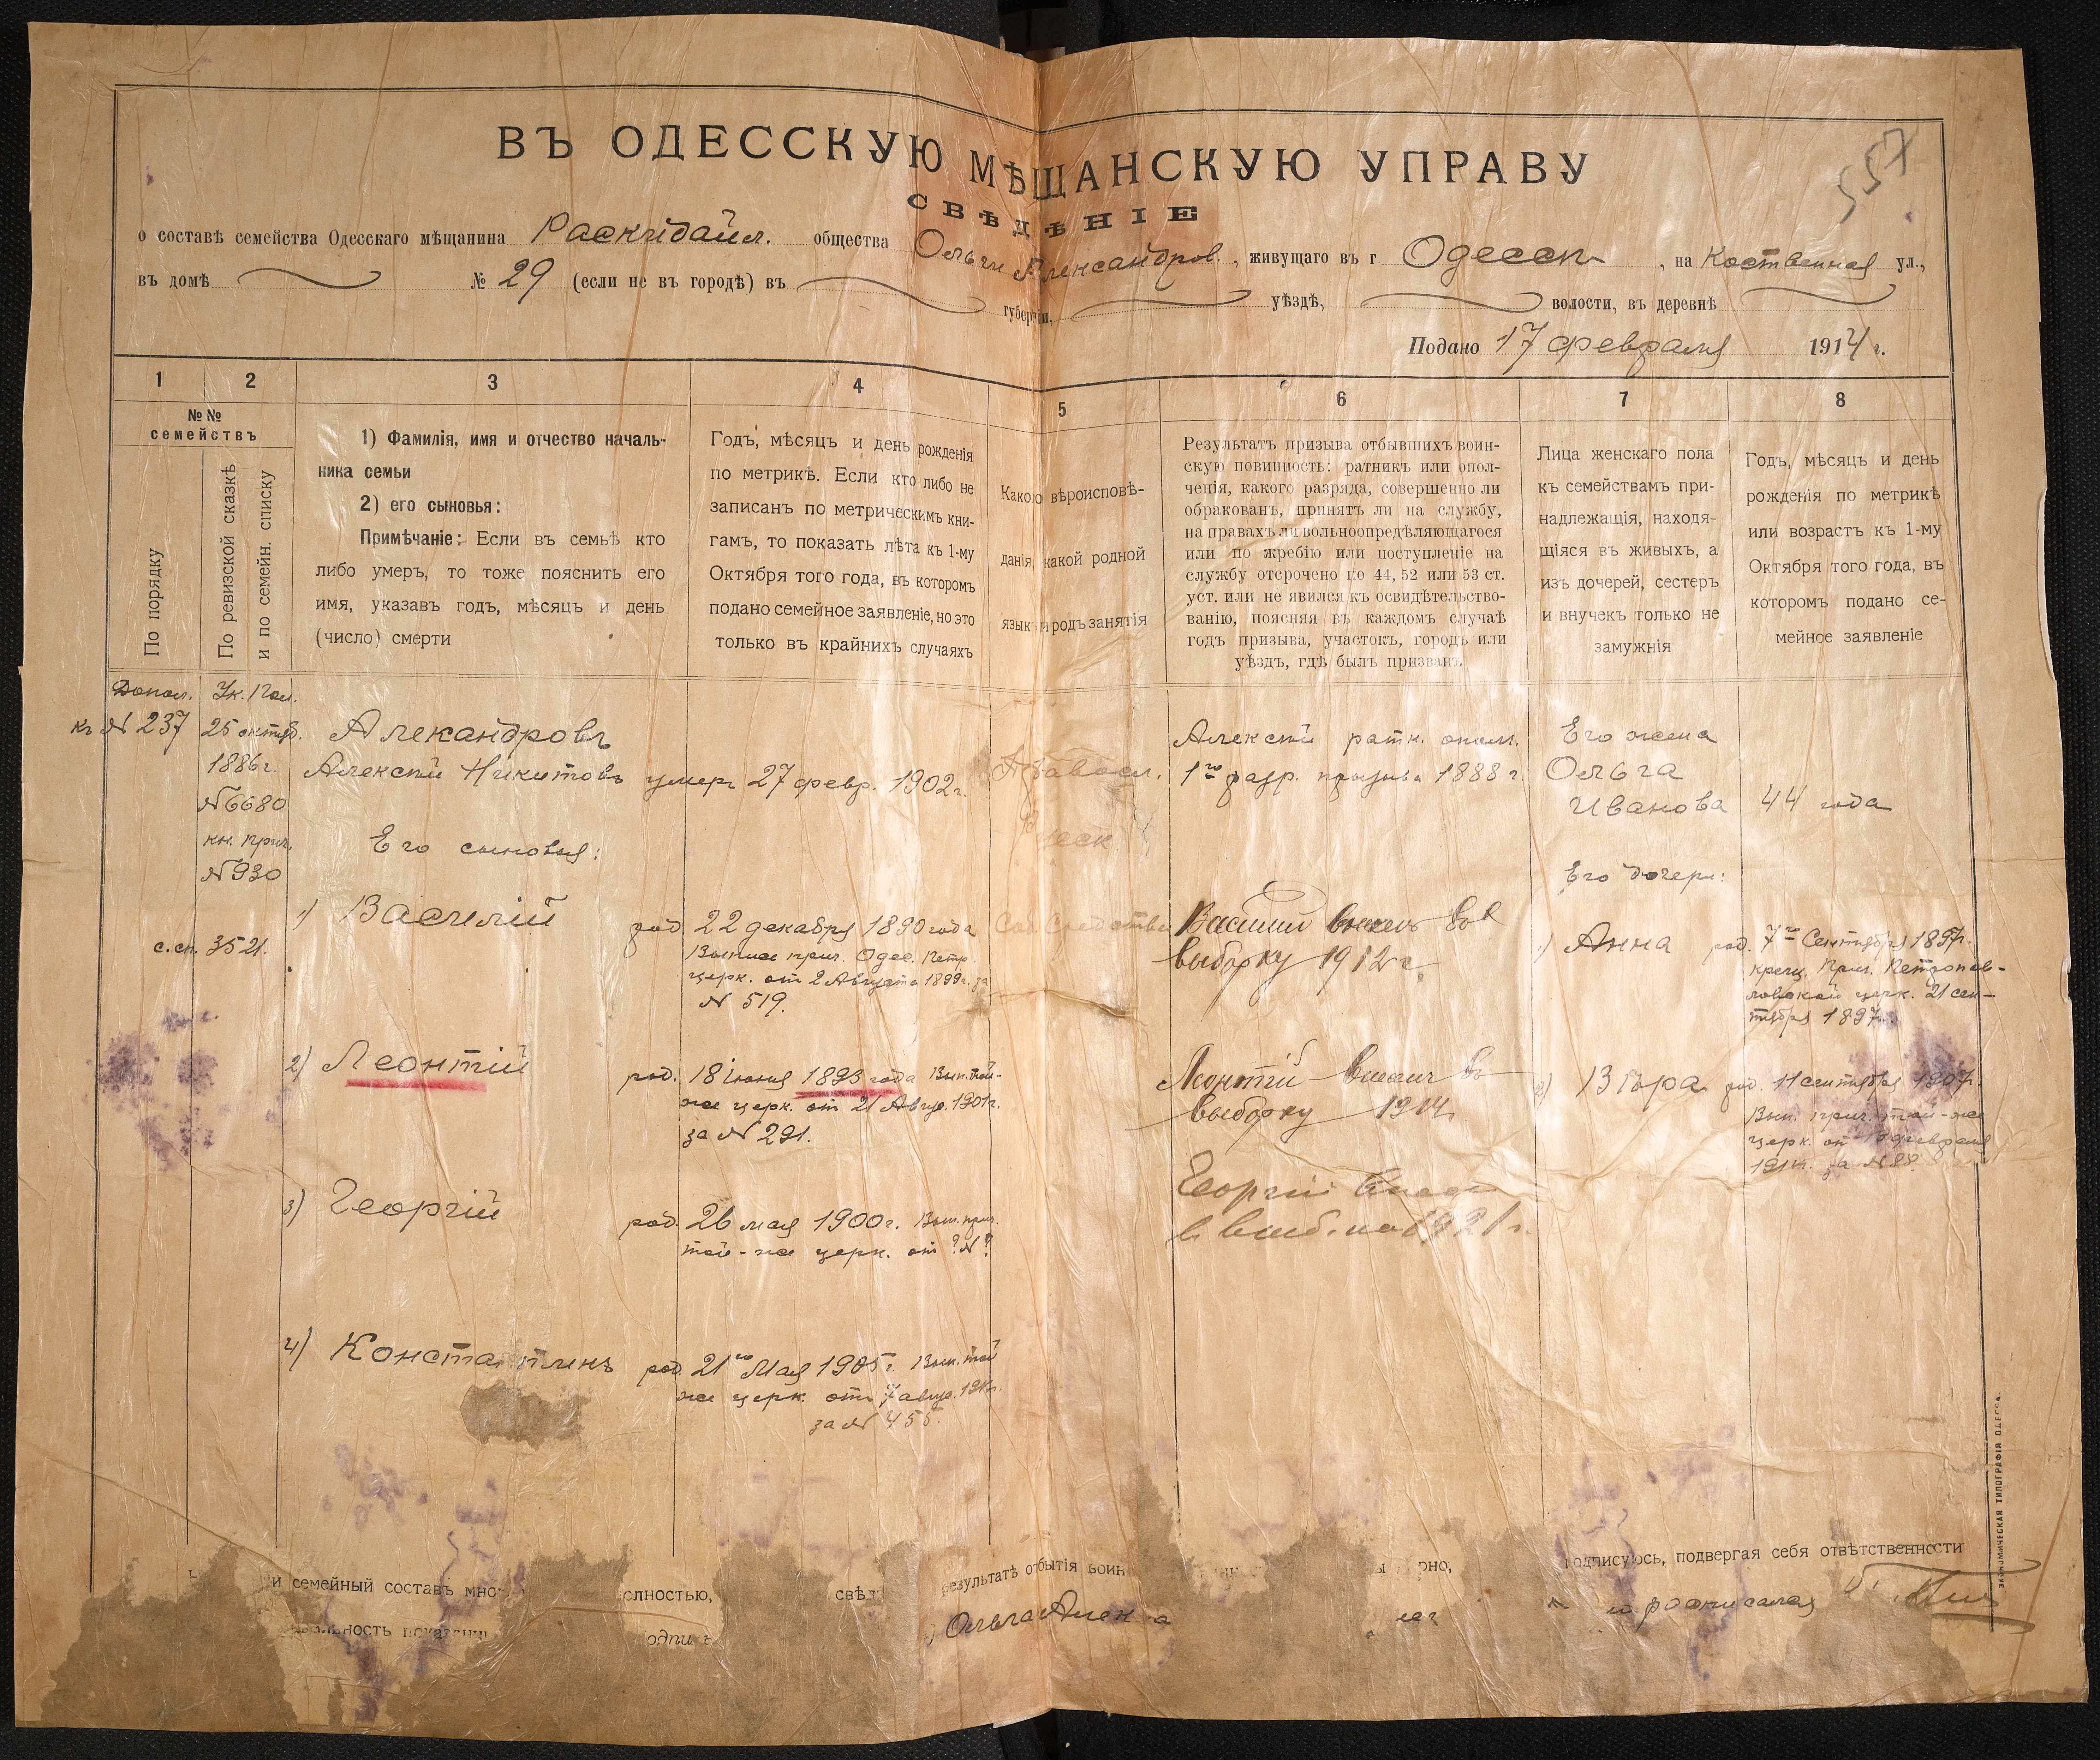 557
ВЪ ОДЕССКУЮ МѢЩАНСКУЮ УПРАВУ
СВѢДѢНІЕ
о составѣ семейства Одесскаго мѣщанина Раскидайл. общества Ольги Александров. , живущаго въ г Одессѣ , на Костенная ул.,
въ домѣ № 29 (если не въ городѣ) въ губерніи, уѣздѣ, волости, въ деревнѣ
Подано 17 февраля 1914 г.
1 2 3 4 5 6 7 8
№№
семействъ
По порядку
По ревизской сказкѣ
и по семейн. списку
1) Фамилія, имя и отчество началь-
ника семьи
2) его сыновья:
Примѣчаніе: Если въ семьѣ кто
либо умеръ, то тоже пояснить его
имя, указавъ годъ, мѣсяцъ и день
(число) смерти
Годъ, мѣсяцъ и день рожденія
по метрикѣ. Если кто либо не
записанъ по метрическимъ кни-
гамъ, то показать лѣта къ 1-му
Октября того года, въ которомъ
подано семейное заявленіе, но это
только въ крайнихъ случаяхъ
Какого вѣроисповѣ-
данія, какой родной
языкъ и родъ занятія
Результатъ призыва отбывшихъ воин-
скую повинность: ратникъ или опол-
ченія, какого разряда, совершенно ли
обракованъ, принятъ ли на службу,
на правахъ ли вольноопредѣляющагося
или по жребію или поступленіе на
службу отсрочено по 44, 52 или 53 ст.
уст. или не явился къ освидѣтельство-
ванію, поясняя въ каждомъ случаѣ
годъ призыва, участокъ, городъ или
уѣздъ, гдѣ былъ призванъ
Лица женскаго пола
къ семействамъ при-
надлежащія, находя-
щіяся въ живыхъ, а
изъ дочерей, сестеръ
и внучекъ только не
замужнія
Годъ, мѣсяцъ и день
рожденія по метрикѣ
или возрастъ къ 1-му
Октября того года, въ
которомъ подано се-
мейное заявленіе
Допол.
къ № 237
с.сп. 3521.
Ук. 
25 октяб.
1886 г.
№ 6680
кн. прич.
№ 930
Алекандровъ
Алексѣй Никитовъ умеръ 27 февр. 1902 г.
Его сыновья:
1) Василій род. 22 декабря 1890 года
Выпись прич. Одес. Петр.
церк. от 2 Августа 1899 г. за
№ 519.
2) Леонтій род. 18 іюня 1893 года Вып. той-
же церк. от 21 Авгус. 1901 г.
за № 291.
3) Георгій род. 26 мая 1900 г. Вып. прич.
той-же церк. от ? № ?
4) Константинъ род. 21го Мая 1905 г. Вып. той
же церк. от 7 авгус.
за № 455.
Правосл.
Русск.
Соб. Средства
Алексѣй ратн. ополч.
1го разр. призыва 1888 г.
Василій внесенъ во
выборку 1912 г.
Леонтій внесенъ въ
выборку 1914
Георгій
1921 г.
Его жена
Ольга
Иванова 44 года
Его дочери:
1) Анна род. 7го Сентября 1897 г.
крещ. Прич. Петропав-
ловской церк. 21 сен-
тября 1897 г.
2) Вѣра род. 11 сентября 1907 г.
Вып. прич. той-же
церк. от февраля
за №
и семейный составъ мно олностью, свѣд результатѣ отбытія воин ы рно, подписуюсь, подвергая себя отвѣтственности
ность показан подпи Ольга Алек а и росписалась
ЭКОНОМИЧЕСКАЯ ТИПОГРАФІЯ ОДЕССА.